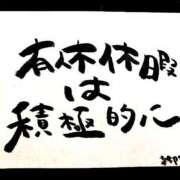 有休休暇
は
積極的に